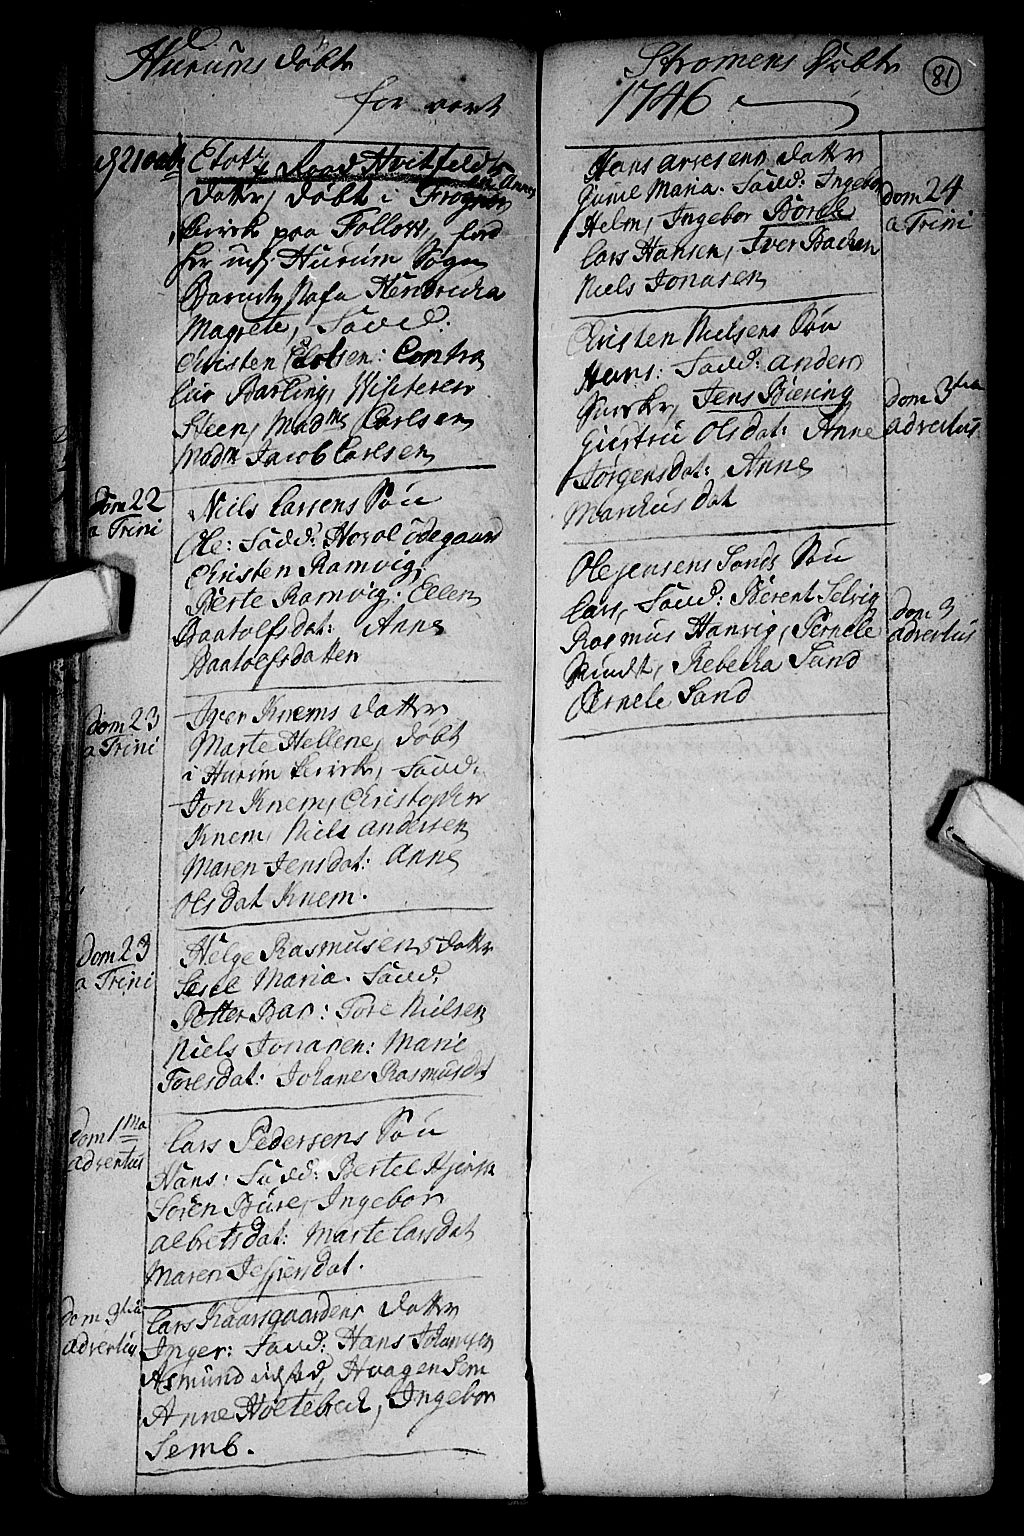 Hurums døbte
for vort
d 21 octb
Etats
Raad Hvitfeldts
Datter, døbt i Frogner
kirck paa Follow, ford
Hurum Sogn
Hendricka
Magrete, Fadd:
Christen Elotsen: Contro
leur Barling, Visiteren
Steen, Madme Carlsen,
Madm Jacob Carlsen,
dom 22
a Trini
Niels Larsens Søn
Ole: Fadd: Horol ødegaard
Christen Ramvig,
Berte Ramvig: Ellen
Baatolfsdat: Anne
Baatolfsdatter
dom 23
a Trini
Iver Knems datter
Marte Hellene, døbt
i Hurum kirck, Fadd:
Jon Knem, Christopher
Knem, Niels Andersen,
Maren Jensdat: Anne
Olsdat Knem.
dom 23
a Trini
Helge Rasmusens datter
Maria. Fadd:
Petter Bar: Tore Nielsen,
Niels Jonasen: Marie
Toresdat: Johane Rasmusdt
dom 1 ma
adventus
Lars Pedersens Søn
Hans: Fadd: Bertel
Søren Bure, Ingebor
albretsdat: Marte Larsdat
Maren Jespersdat.
dom 3tia
adventus
Lars Kaarsgaardens datter
Inger: Fadd: Hans Johansen
Asmund Haagen Sem
Anne Holtebeck, Ingebor
Semb.
Strømens Døbte
1746
81
Hans datter
Maria. Fadd: Ingebor
Helm, Ingebor
Lars Hansen, Iver Backen
Niels Jonasen,
dom 24
a Trini
Christen Nielsens Søn
Hans: Fadd: Anders
Jens Biering
Giertru Olsdat: Anne
Jørgensdat: Anne
Marckusdat
dom 3tia
adventus
Ole Jensens Sands Søn
Lars, Fadd: Berent Selvig
Rasmus Hanvig, Pernele
Mundt, Rebecka Sand
Pernele Sand
dom 3
adventus